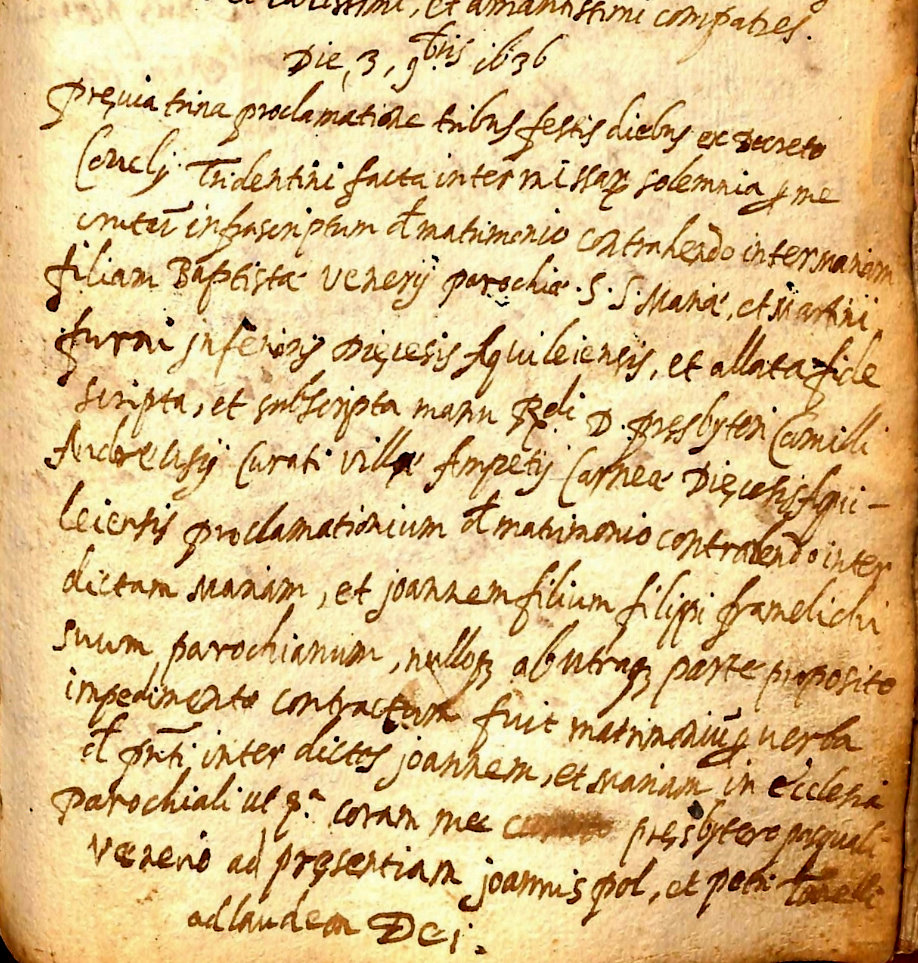 et carissimi, et amantissimi compatres.
Die, 3, 9bris 1636
Pręvia trina proclamatione tribus festis diebus ex Decreto
Concilij Tridentini facta inter missarum solemnia p me
curatum infrascriptum de matrimonio contrahendo inter Mariam
filiam Baptistæ Venerij parochiæ S. S. Mariæ, et Martini
furni Inferioris Dięcesis Aquileiensis, et allata fide
scripta, et subscripta manu Rdi D. Pręsbyteri Camilli
Andreusij Curati villæ Ampetij Carneæ Dięcesis Aqui-
leiensis proclamationium de matrimonio contrahendo inter
dictam Mariam, et Joannem filium filippi framelichi
suum parochianum, nulloq ab utraq parte proposito
impedimento contractum fuit matrimoniū p verba
de pnti inter dictos Joannem, et Mariam in Ecclesia
parochiali ut sa coram me pręsbytero pasquali
Venerio ad pręsentiam Joannis pol, et petri
ad laudem Dei.